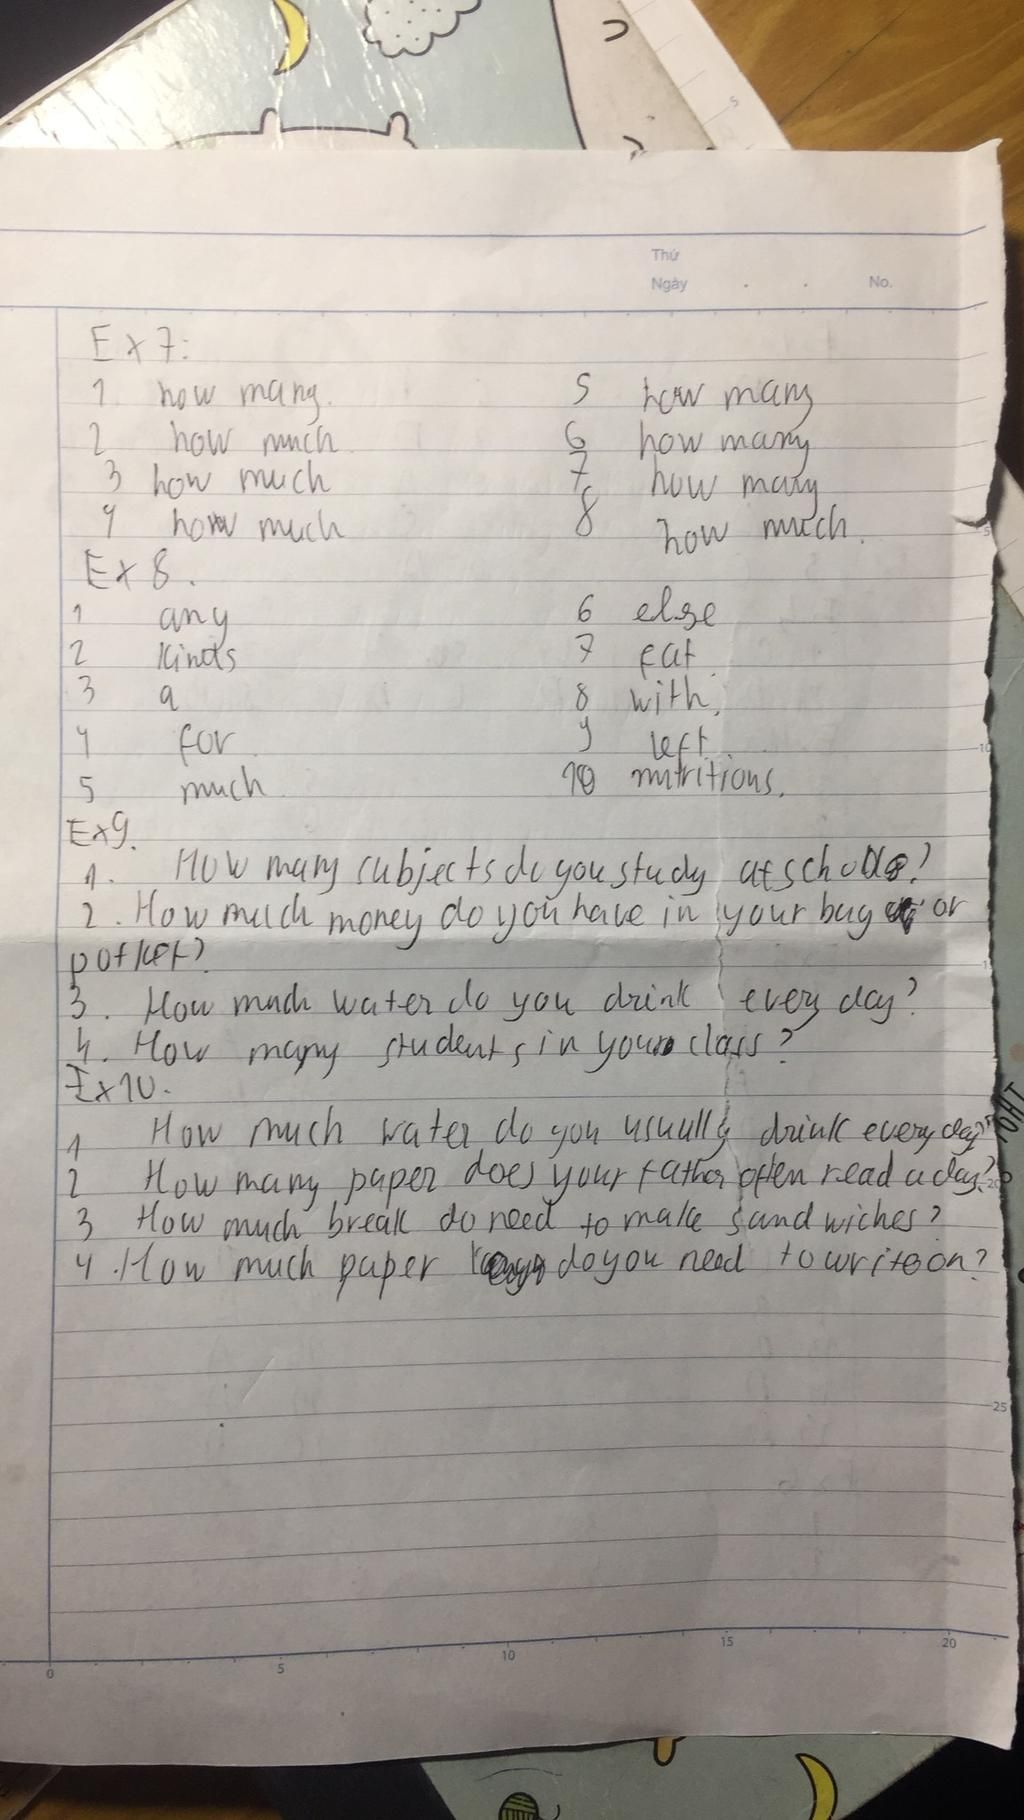 Thứ
Ngày . . No.
Ex 7:
1 how many. 5 how many
2 how much 6 how many
3 how much 7 how many
4 how much 8 how much.
Ex 8.
1 any 6 else
2 kinds 7 eat
3 a 8 with.
4 for 9 left
5 much 10 nutritions.
Ex9.
1. How many subjects do you study at school?
2. How much money do you have in your bag or
potket?
3. How much water do you drink every day?
4. How many students in your class?
Ex10.
1 How much water do you usually drink every day?
2 How many paper does your father often read a day?
3 How much break do need to make sandwiches?
4. How much paper do you need to write on?
5
10
15
20
25
0 5 10 15 20